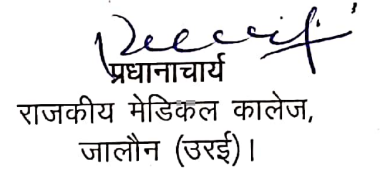 प्रधानाचार्य
राजकीय मेडिकल कालेज,
जालौन (उरई)।